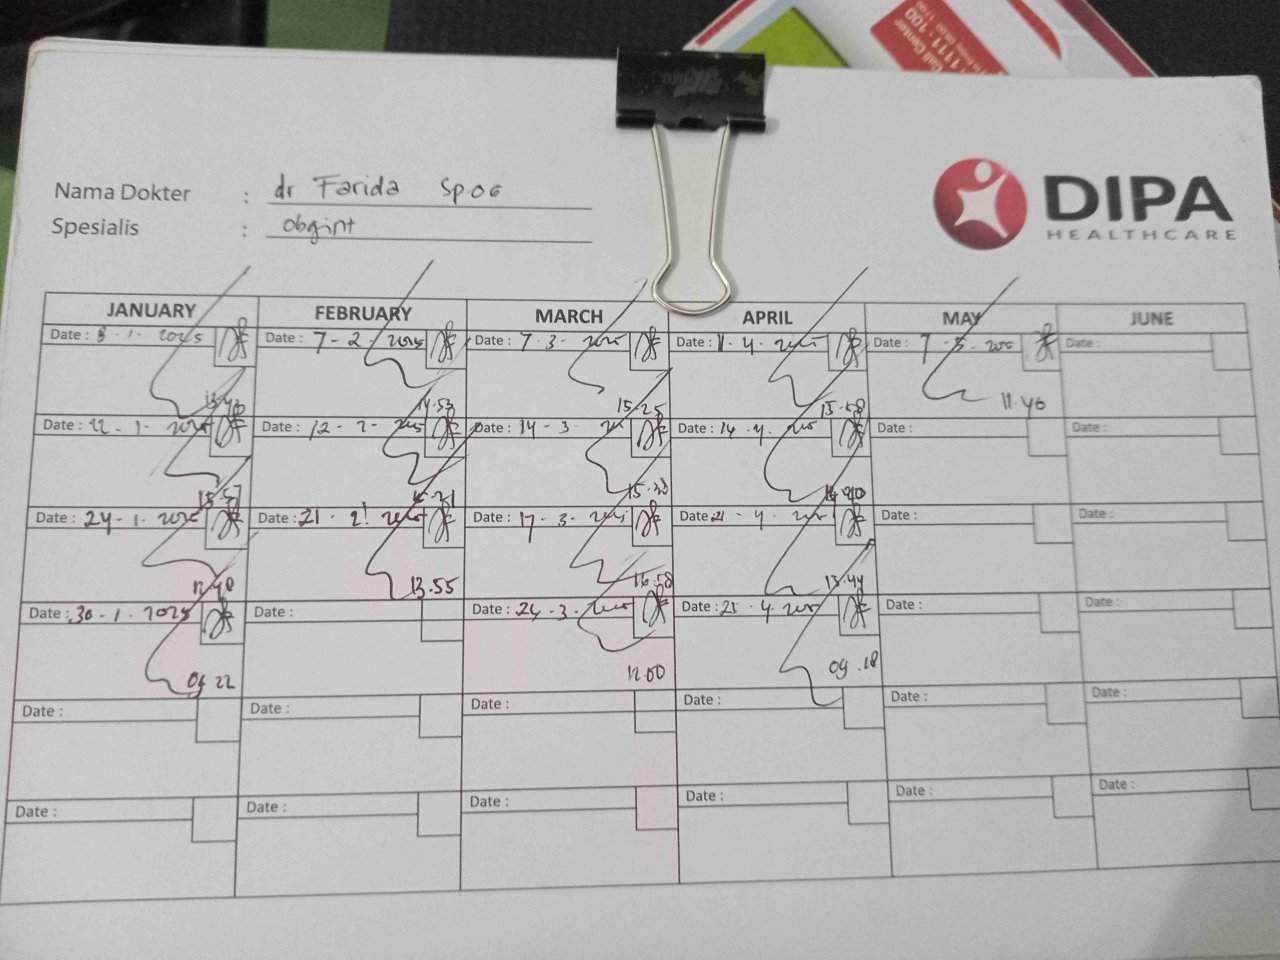 Call Center
1111-100
Nama Dokter : dr Farida Sp.OG
Spesialis : Obgint
DIPA
HEALTHCARE
JANUARY FEBRUARY MARCH APRIL MAY JUNE
Date : 8-1-2025 Date : 7-2-2025 Date : 7-3-2025 Date : 11-4-2025 Date : 7-5-2025 Date :
13.40 14.53 15.25 13.58 11.46
Date : 22-1-2025 Date : 12-2-2025 Date : 14-3-2025 Date : 14-4-2025 Date : Date :
15.57 15.21 15.38 14.40
Date : 24-1-2025 Date : 21-2-2025 Date : 17-3-2025 Date : 21-4-2025 Date : Date :
12.40 13.55 16.58 13.44
Date : 30-1-2025 Date : Date : 24-3-2025 Date : 25-4-2025 Date : Date :
09 22 12.00 09.18
Date : Date : Date : Date : Date : Date :
Date : Date : Date : Date : Date : Date :